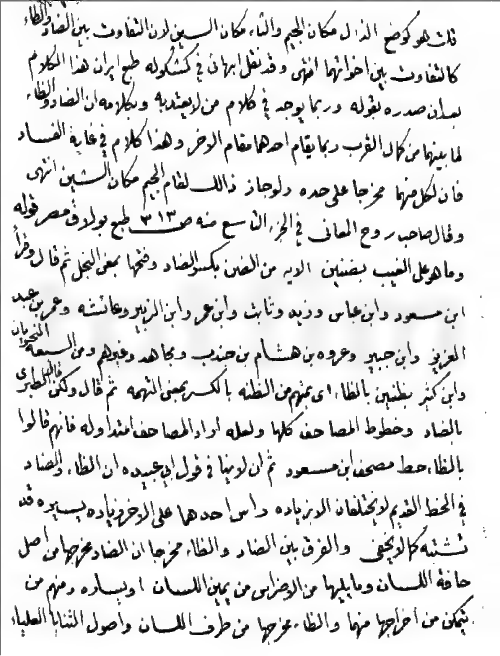 قلت هو كوضع الذال مكان الجيم والثاء مكان السين لان التفاوت بين الضاد والظاء
كالتفاوت بين اخواتهما انتهى وقد نقل ابهائى في كشكوله طبع ايران هذا الكلام
بعد ان صدره بقوله وربما يوجد في كلام من لا يعتد به وبكلامه ان الضاد والظاء
لما بينهما من كمال القرب ربما يقام احدهما مقام الاخر وهذا كلام في غاية الفساد
فان لكل منهما مخرجا على حده ولو جاز ذالك لقام الجيم مكان الشين انتهى
وقال صاحب روح المعانى في الجزء التاسع منه ص ٣١٣ طبع بولاق مصر قوله
وما هو على الغيب بضنين الايه من الضن بكسر الضاد وفتحها بمعنى البخل ثم قال وقرأ
ابن مسعود وابن عباس وزيد وثابت وابن عمر وابن الزبير وعائشه وعمر بن عبد
العزيز وابن جبير وعروه بن هشام بن جندب ومجاهد وغيرهم ومن السبعه النحويان
وابن كثير بظنين بالظاء اى بمتهم من الظنه بالكسر بمعنى التهمه ثم قال ولكن قال الطبرى
بالضاد وخطوط المصاحف كلها ولعله اراد المصاحف المتداوله فانهم قالوا
بالظاء خط مصحف ابن مسعود ثم ان لا ينافى قول ابى عبيده ان الظاء والضاد
في الخط القديم لا يختلفان الا بزياده راس احدهما على الاخر زياده يسيره قد
تشتبه كما لا يخفى والفرق بين الضاد والظاء مخرجا ان الضاد مخرجها من اصل
حافة اللسان وما يليها من الاضراس من يمين اللسان او يساره ومنهم من
يتمكن من اخراجها منهما والظاء مخرجها من طرف اللسان واصول الثنايا العلياء